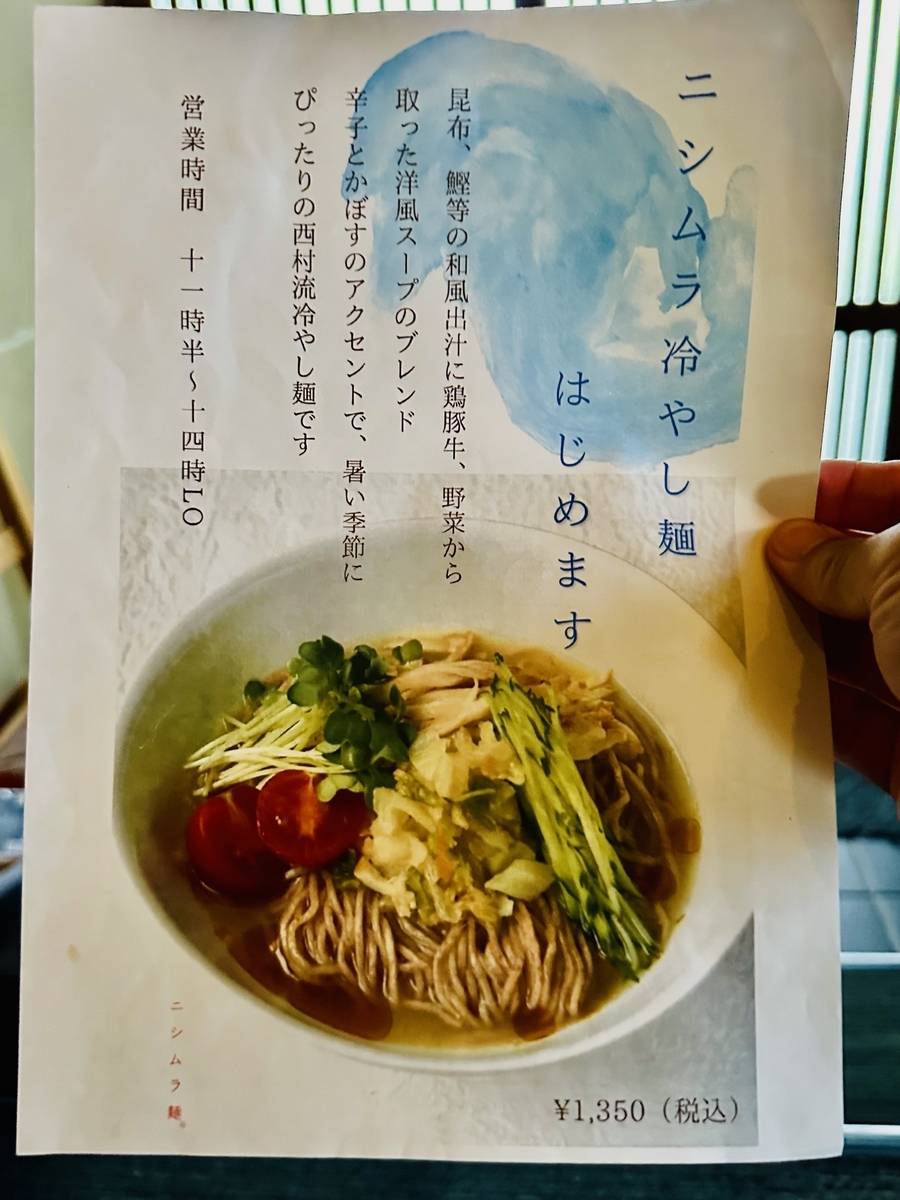 ニシムラ冷やし麺
はじめます
昆布、鰹等の和風出汁に鶏豚牛、野菜から
取った洋風スープのブレンド
辛子とかぼすのアクセントで、暑い季節に
ぴったりの西村流冷やし麺です
営業時間　十一時半～十四時LO
ニシムラ麺。
¥1,350（税込）